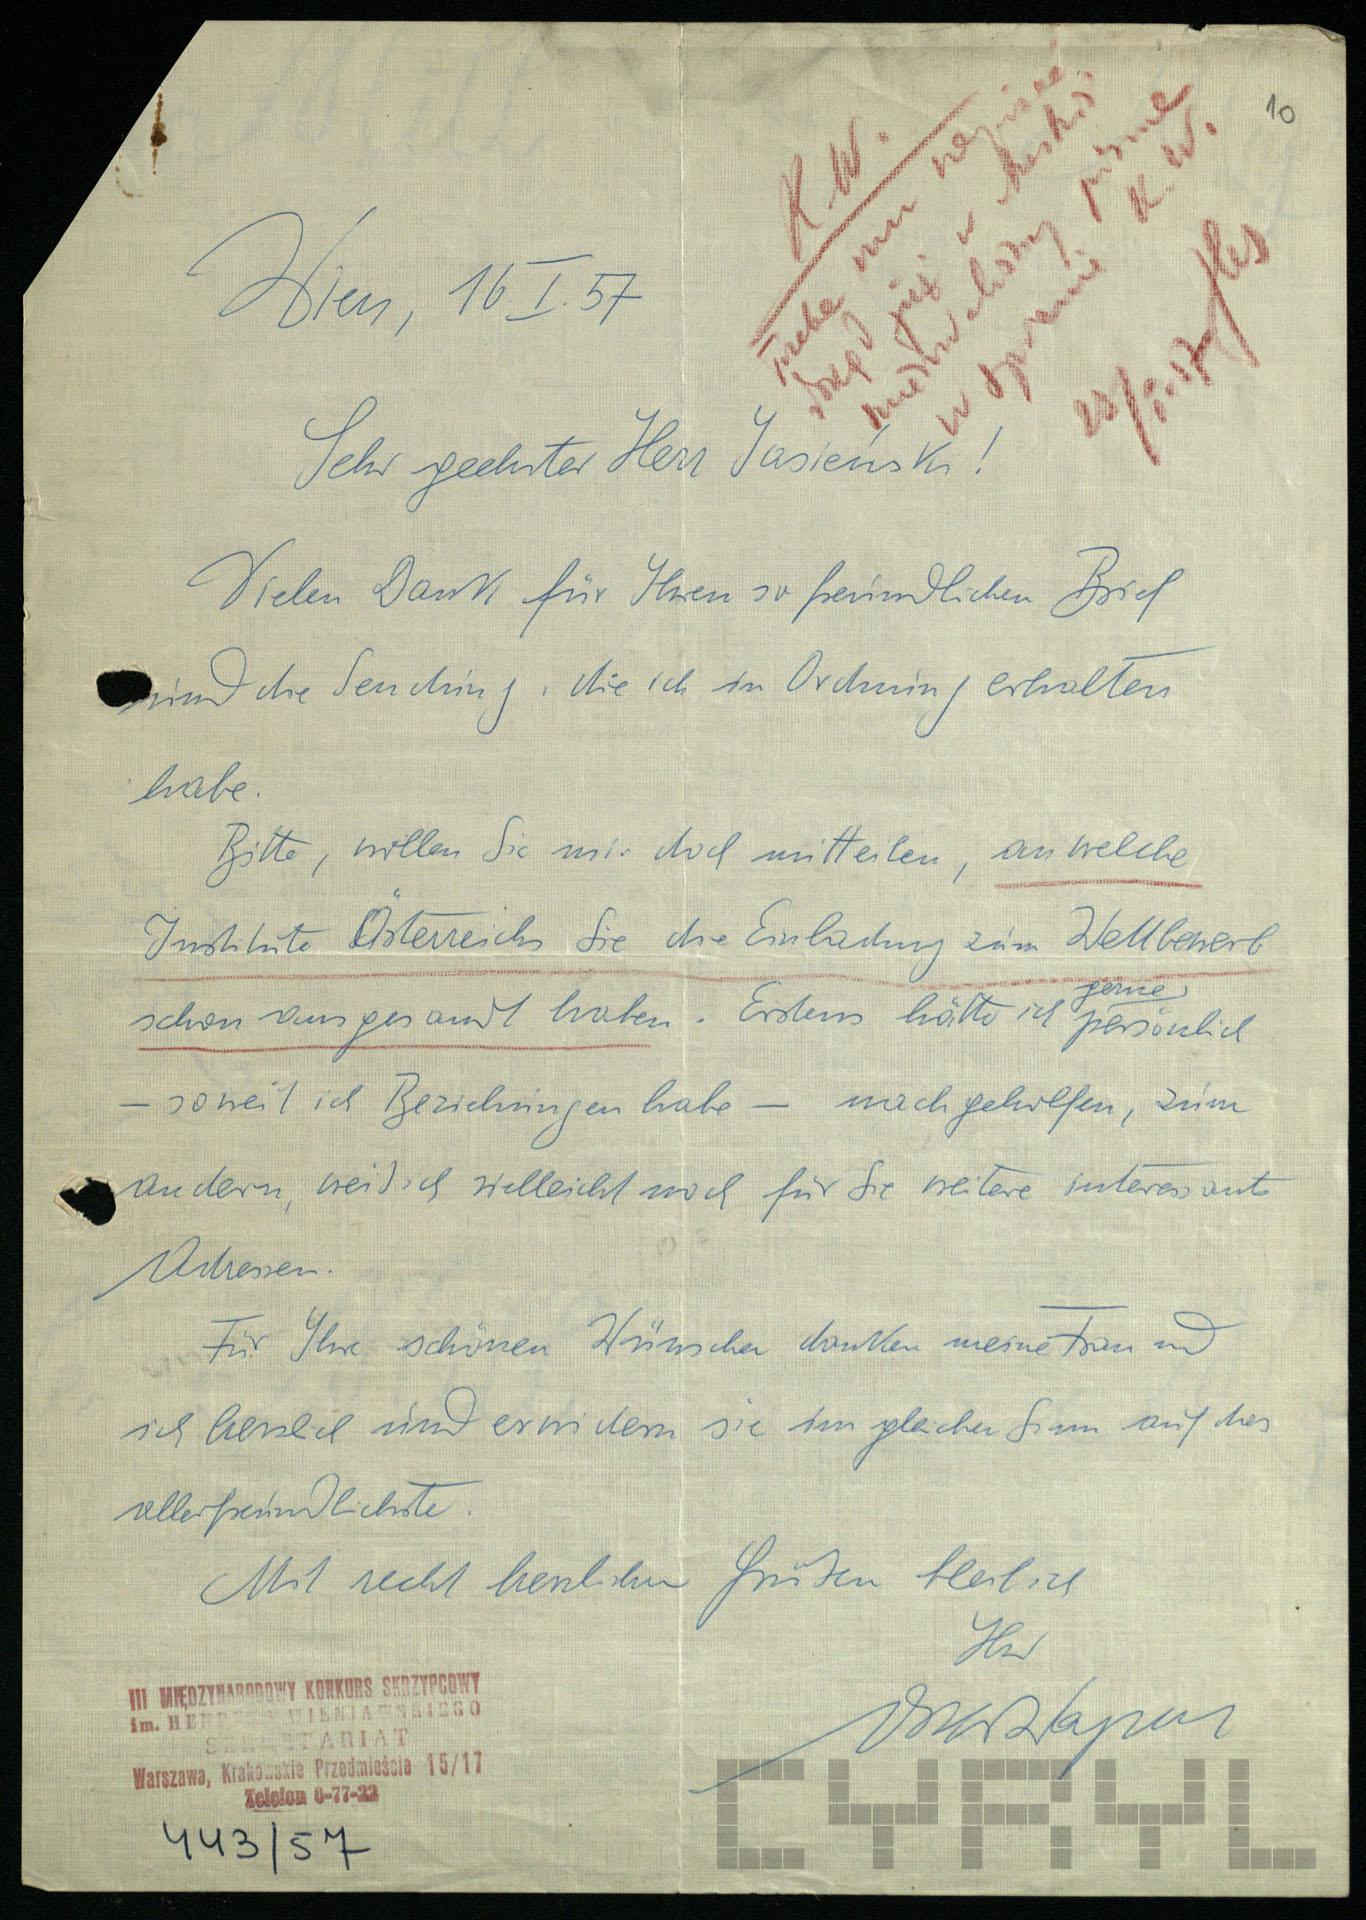 10
K. W.
trzeba mu napisać
skąd już w
w sprawie K. W.
Wien, 16 I. 57
Sehr geehrter Herr Jasieński!
Vielen Dank für Ihren so freundlichen Brief
und die Sendung, die ich in Ordnung erhalten
habe.
Bitte, wollen Sie mir doch mitteilen, an welche
Institute Österreichs Sie die Einladung zum Wettbewerb
schon ausgesandt haben. Erstens hätte ich gerne persönlich
– soweit ich Beziehungen habe – nachgeholfen, zum
andern, weiß ich vielleicht noch für Sie weitere interessante
Adressen.
Für Ihre schönen Wünsche danken meine Frau und
ich herzlich und erwidern sie im gleichen Sinn auf das
allerfreundlichste.
Mit recht herzlichen Grüßen bleib ich
Ihr
III MIĘDZYNARODOWY KONKURS SKRZYPCOWY
im. HENRYKA WIENIAWSKIEGO
SEKRETARIAT
Warszawa, Krakowskie Przedmieście 15/17
Telefon 6-77-22
443/57
CYRYL